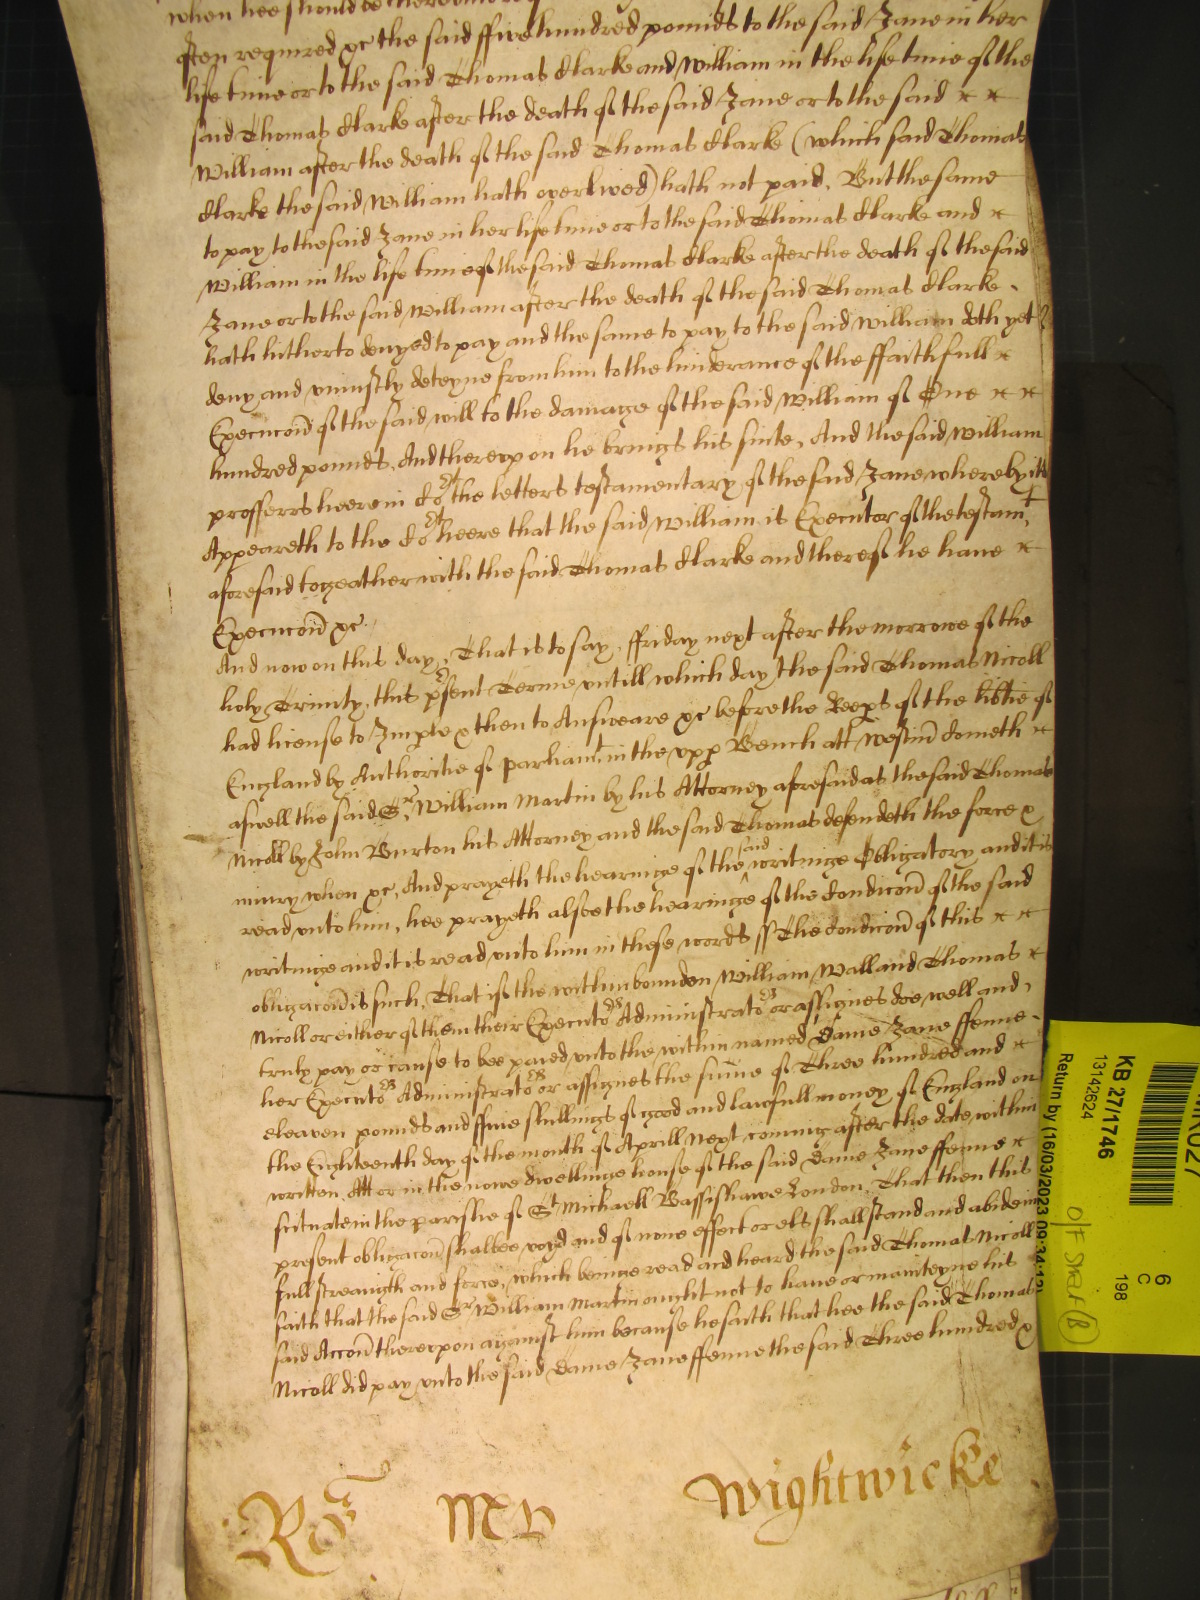 when hee should be thereunto
often required &c the said ffive hundred pounds to the said Jane in her
life time or to the said Thomas Clarke and William in the life time of the
said Thomas Clarke after the death of the said Jane or to the said
William after the death of the said Thomas Clarke (which said Thomas
Clarke the said William hath overlived) hath not paid, But the same
to pay to the said Jane in her life time or to the said Thomas Clarke and
William in the life time of the said Thomas Clarke after the death of the said
Jane or to the said William after the death of the said Thomas Clarke
hath hitherto denyed to pay and the same to pay to the said William doth yet
deny and uniustly deteyne from him to the hinderance of the ffaithfull
Execucoñ of the said will to the damage of the said William of One
hundred pounds, And thereupon he brings his suite, And the said William
profferrs heere in Cort the letters testamentary of the said Jane whereby itt
Appeareth to the Cort heere that the said William is Executor of the testamt
aforesaid togeather with the said Thomas Clarke and thereof he have
Execucoñ &c.
And now on this day, That is to say, ffriday next after the morrowe of the
holy Trinity, this p'sent Terme untill which day the said Thomas Nicoll
had license to Imple & then to Answeare &c before the Keeps of the libtie of
England by Authoritie of parliamt in the upp Bench att Westm̃ cometh
aswell the said Sr William Martin by his Attorney aforesaid as the said Thomas
Nicoll by John Burton his Attorney and the said Thomas defendeth the force &
iniury when &c, And prayeth the hearinge of the said writinge Obligatory and it is
read unto him, hee prayeth alsoe the hearinge of the Condicoñ of the said
writinge and it is read unto him in these words ss The Condicoñ of this
obligacoñ is such, That if the within bounden William Wall and Thomas
Nicoll or either of them their Executors Administrators or assignes doe well and
truly pay or cause to bee payed unto the within named Dame Jane ffenne
her Executors Administrators or assignes the sum̃e of Three hundred and
eleaven pounds and ffive shillings of good and lawfull money of England on
the Eighteenth day of the month of Aprill next coming after the date within
written, Att or in the nowe dwellinge house of the said Dame Jane ffenne
scituate in the parishe of St Michaell Bassishawe London, That then this
present obligacoñ shalbee voyd and of none effect or els shall stand and abide in
full streangth and force, which beinge read and heard the said Thomas Nicoll
saith that the said Sr William Martin ought not to have or mainteyne his
said Accoñ thereupon against him because he saith that hee the said Thomas
Nicoll did pay unto the said Dame Jane ffenne the said Three hundred &
Wightwicke
KB 27/1746
13142624
Return by (16/03/2023 09:34:12)
6
C
198